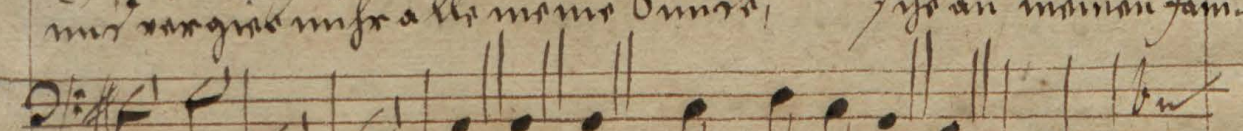 und vergieb mihr alle meine Sünde, / sihe an meinen Jam-